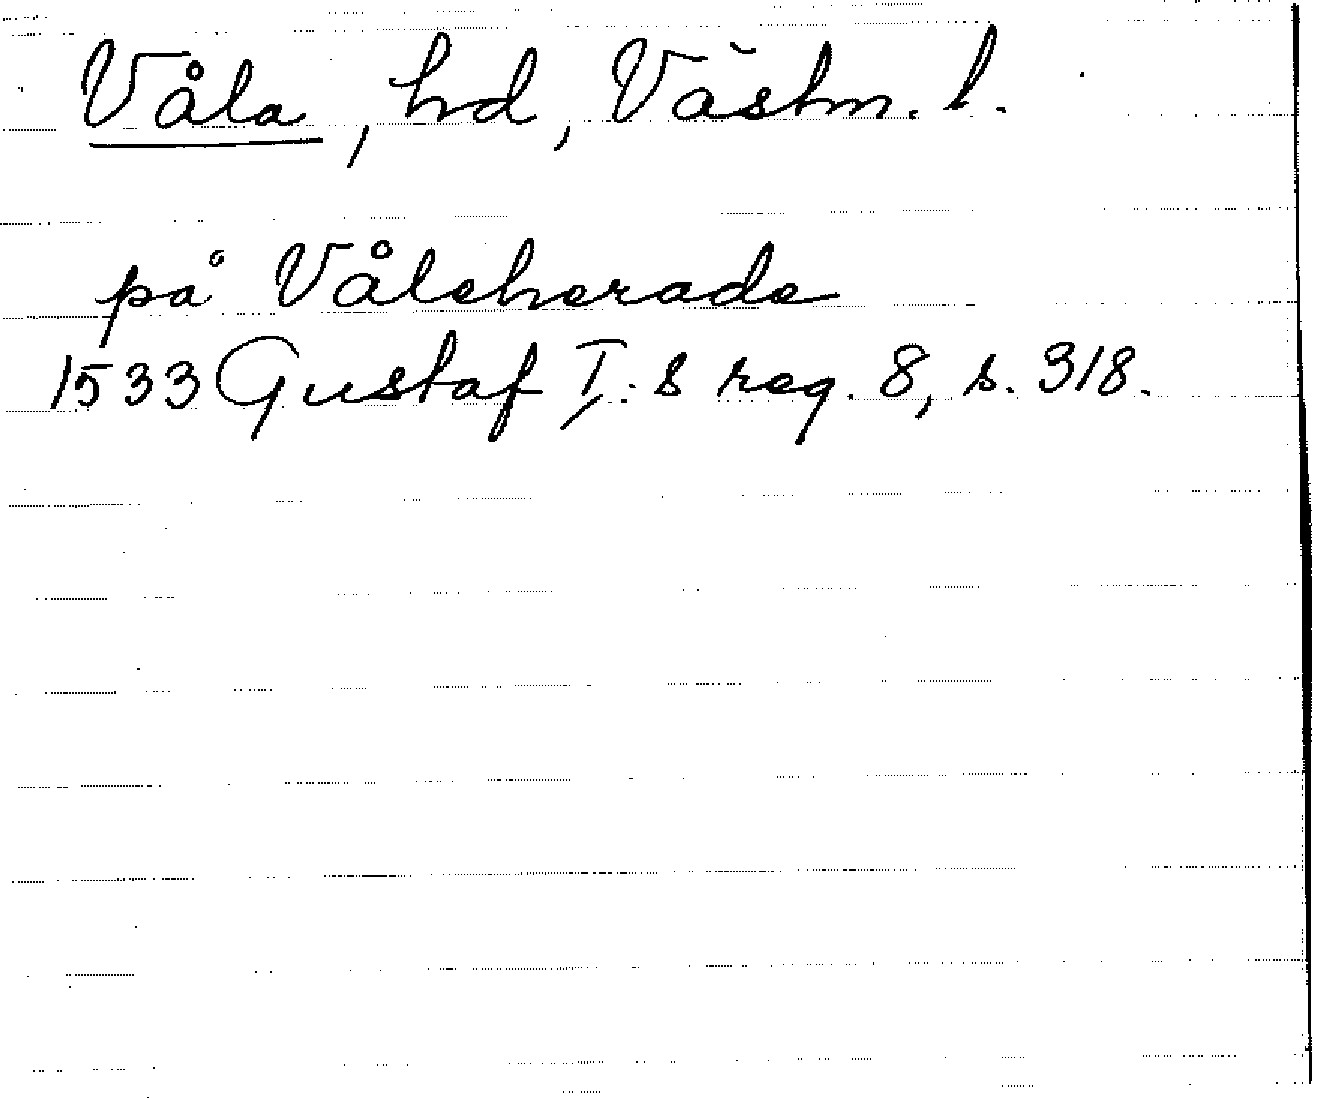 Våla, hd, Västm. l.
på Våleherade
1533 Gustaf I:s reg. 8, s. 318.